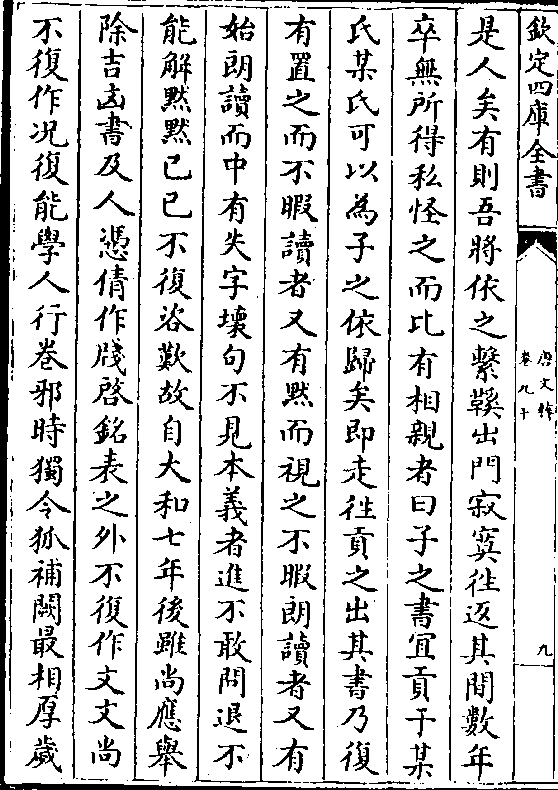 欽定四庫全書
唐文粹
卷九十
九
是人矣有則吾將依之繫鞵出門寂寞往返其間數年
卒無所得私怪之而比有相親者曰子之書宜貢于某
氏某氏可以為子之依歸矣即走往貢之出其書乃復
有置之而不暇讀者又有黙而視之不暇朗讀者又有
始朗讀而中有失字壞句不見本義者進不敢問退不
能解黙黙已已不復咨歎故自大和七年後雖尚應舉
除吉凶書及人憑倩作牋啓銘表之外不復作文文尚
不復作况復能學人行卷邪時獨令狐補闕最相厚歲